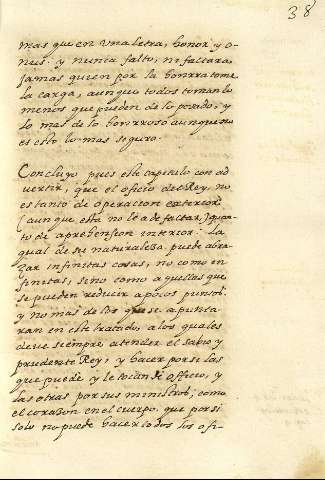 38
mas que en una letra, honor, y o-
nus. y nunca falto, ni faltara,
jamas quien por la honrra tome
la carga, aunque todos toman lo
menos que pueden de lo pesado, y
lo mas de lo honrroso aunque no
es esto lo mas seguro.
Concluyo pues este capitulo con ad
vertir, que el oficio del Rey, no
es tanto de operacion exterior
(aun que esta no le a de faltar,) quan-
to de aprehension interior. La
qual de su naturaleza puede abra-
zar infinitas cosas, no como in
finitas, sino como aquellas que
se pueden reducir a pocos puntos.
y no mas de los que se apunta-
ran en este tratado, a los quales
deve siempre atender el sabio y
prudente Rey, y hacer por si las
que puede y le tocan de officio, y
las otras por sus ministros; como
el corazon en el cuerpo, que por si
solo no puede hacer todos los ofi-